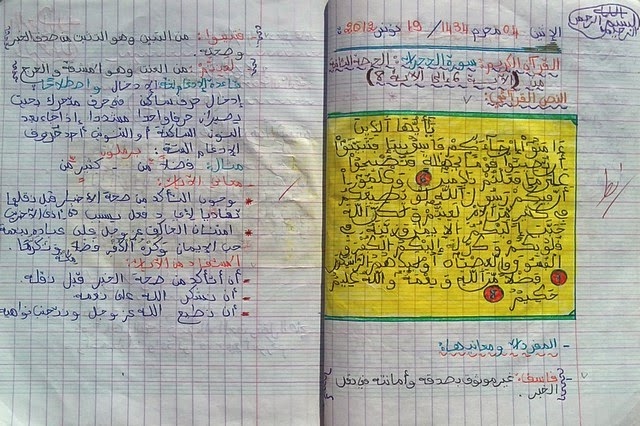 بسم الله الرحمن الرحيم
الإثنين 04 محرم 1434 / 19 نونبر 2012
القرآن الكريم: سورة الحجرات: الحصة الثانية
من (الآية 6 إلى الآية 8)
النص القرآني:
يا أيها الذين
ءامنوا إن جاءكم فاسق بنبإ فتبينوا
أن تصيبوا قوما بجهالة فتصبحوا
على ما فعلتم نادمين 6 واعلموا
أن فيكم رسول الله لو يطيعكم
في كثير من الأمر لعنتم ولكن الله
حبب إليكم الايمن وزينه في
قلوبكم وكره إليكم الكفر
والفسوق والعصيان أولئك هم الراشدون
7 فضلا من الله ونعمة والله عليم
حكيم 8
- المفردات ومعانيها:
- فاسق: غير موثوق بصدقه وأمانته في نقل
الخبر.
فتبينوا: من التبين وهو التثبت من صدق الخبر
وصحته.
لعنتم: من العنت وهو المشقة والحرج
قاعدة الإدغام بغنة: الإدخال واصطلاحا:
إدخال حرف ساكن في حرف متحرك بحيث
يصيران حرفا واحدا مشددا إذا جاء بعد
النون الساكنة أو التنوين أحد حروف
الإدغام الستة: يرملون
مثال: فضلا من - كثير من
- معاني الآيات:
* وجوب التأكد من صحة الأخبار قبل نقلها
تفاديا لأي رد فعل يسبب في أذى الآخرين
* امتنان الخالق عز وجل على عباده بنعمة
حب الايمان وكره الكفر فضلا وتكرما.
- المستفاد من الآيات:
- أن أتأكد من صحة الخبر قبل نقله.
- أن نشكر الله على نعمه.
- أن نطيع الله عز وجل ونجتنب نواهيه